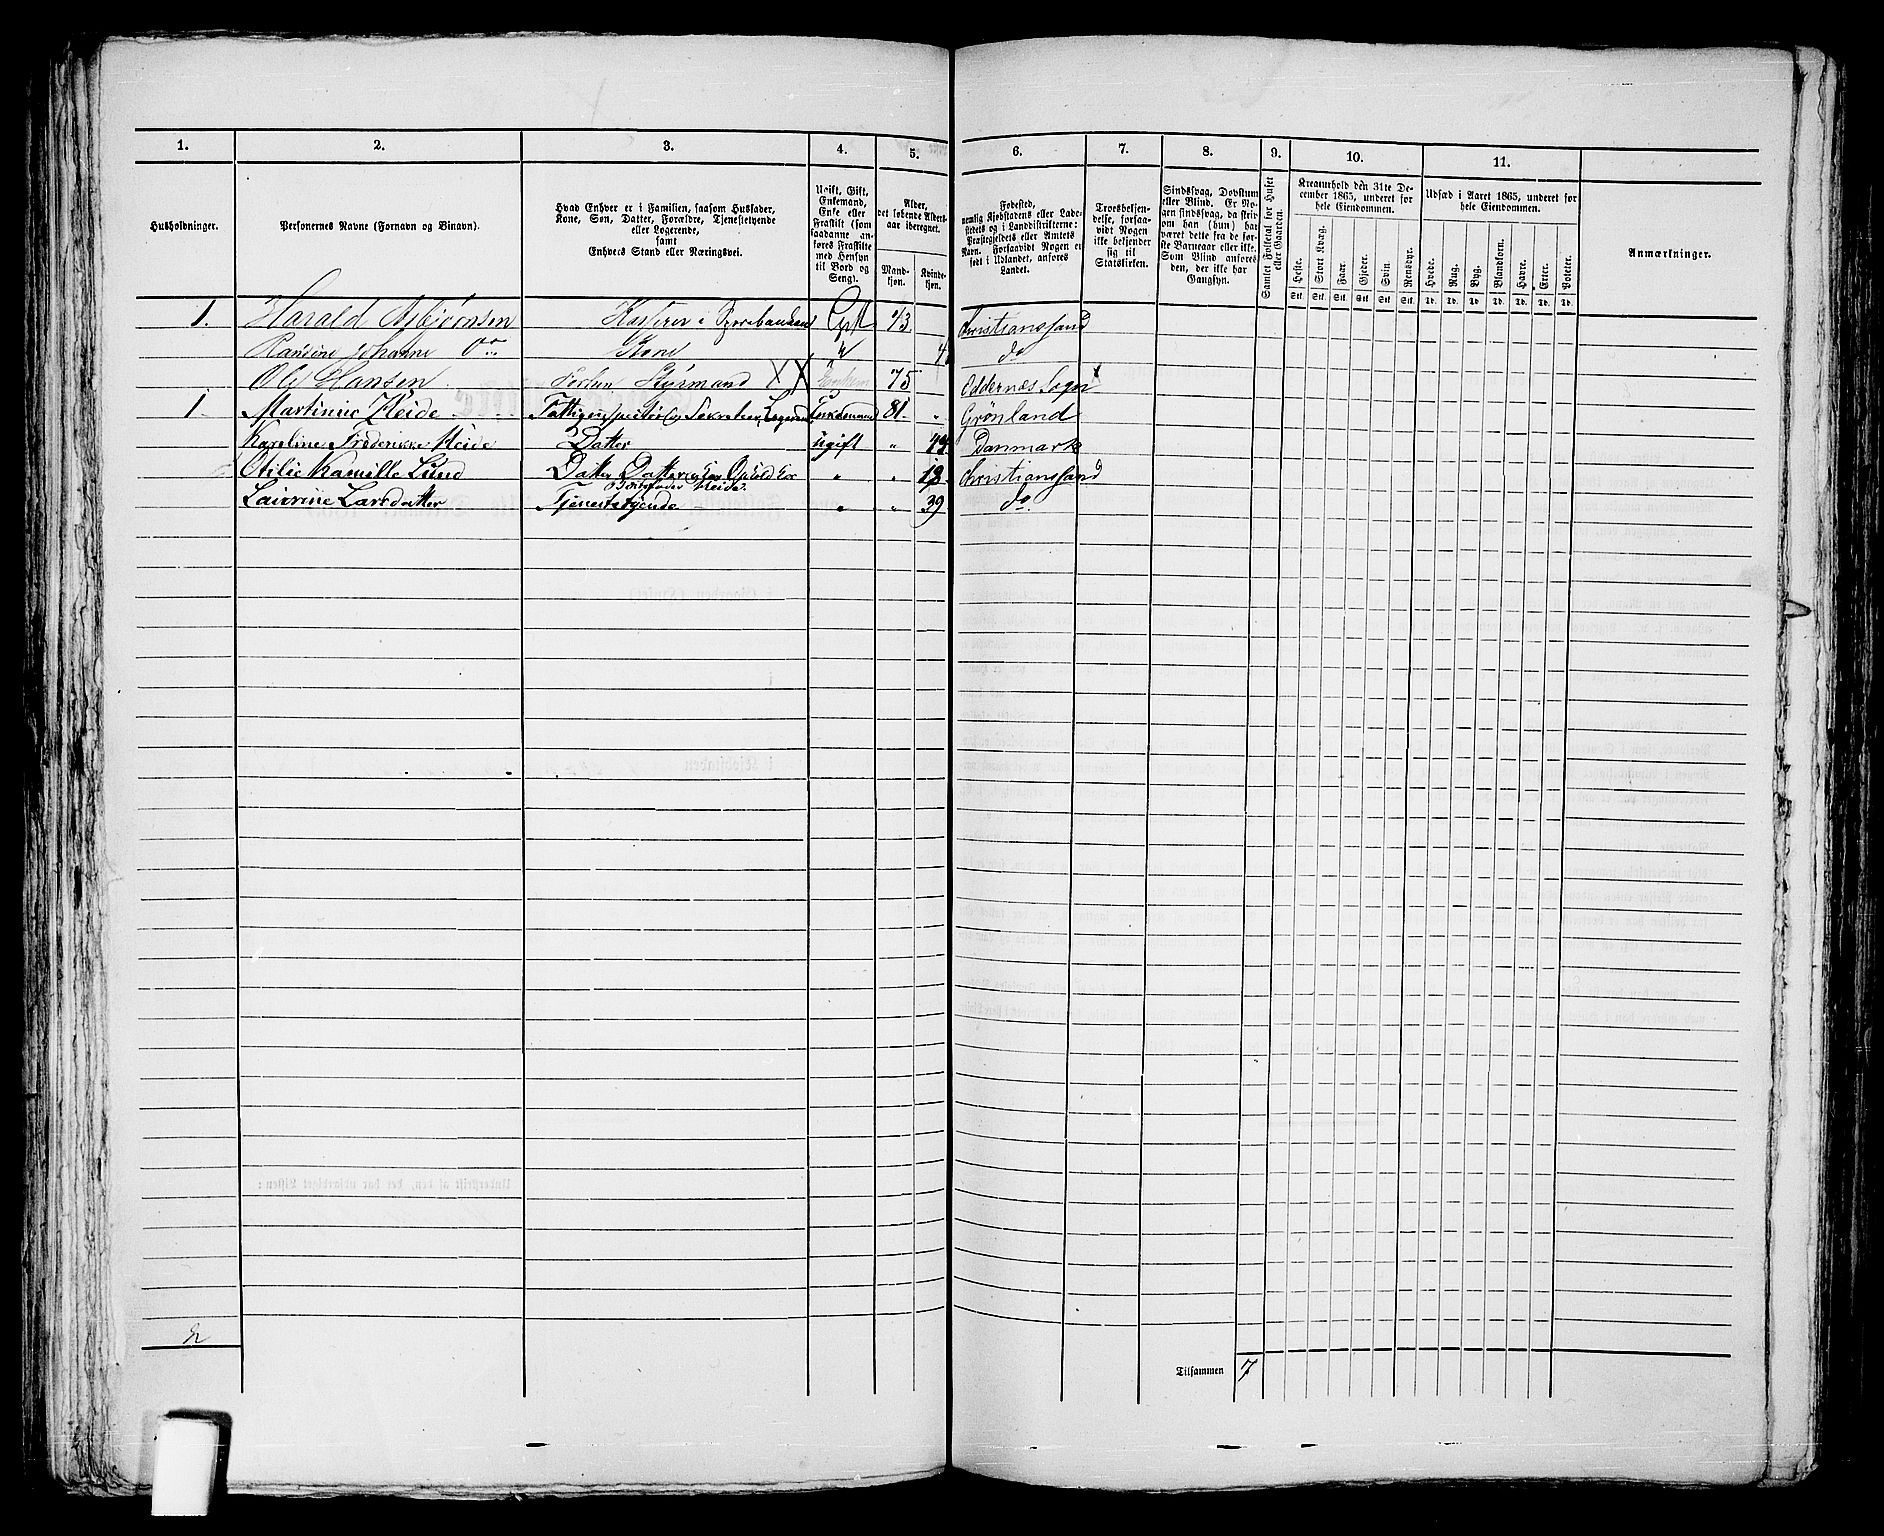 1. 2. 3. 4. 5. 6. 7. 8. 9. 10. 11.
Husholdninger.
Personernes Navne (Fornavn og Binavn).
Hvad Enhver er i Familien, saasom Husfader,
Kone, Søn, Datter, Forældre, Tjenestetyende
eller Logerende,
samt
Enhvers Stand eller Næringsvei.
Ugift, Gift,
Enkemand,
Enke eller
Fraskilt (som
saadanne an-
føres Fraskilte
med Hensyn
til Bord og
Seng).
Alder,
det løbende Alders-
aar iberegnet.
Mand-
kjøn.
Kvinde-
kjøn.
Fødested,
nemlig Kjøbstadens eller Lade-
stedets og i Landdistrikterne:
Præstegjeldets eller Amtets
Navn. Forsaavidt Nogen er
født i Udlandet, anføres
Landet.
Troesbekjen-
delse, forsaa-
vidt Nogen
ikke bekjender
sig til
Statskirken.
Sindssvag, Døvstum
eller Blind. Er No-
gen sindssvag, da skriv
om han (hun) har
været dette fra de før-
ste Barneaar eller ikke.
Som Blind anføres
den, der ikke har
Gangsyn.
Samlet Folketal for Huset
eller Gaarden.
Kreaturhold den 31te De-
cember 1865, underet for
hele Eiendommen.
Heste. Stort Kvæg. Faar. Gjeder. Svin. Rensdyr.
Stk. Stk. Stk. Stk. Stk. Stk.
Udsæd i Aaret 1865, underet for
hele Eiendommen.
Hvede. Rug. Byg. Blandkorn. Havre. Erter. Poteter.
Td. Td. Td. Td. Td. Td. Td.
Anmærkninger.
1. Harald Asbjørnsen Kasserer i Sparebanken Gift 43. Christianssand
Johanne Kone " 4 do
Ole Hansen Styrmand XX Enkem 75 Oddernæs Sogn x
1 Martinius Heide Sekretær, Logerende Enkemand 81. " Grønland
Karoline Frederikke Heide Datter ugift " 44 Danmark
Otilie Kamille Lund Datter Datter Ophold hos " " Christianssand
Heide.
Larsdatter Tjenestetyende " " 39 do
2
Tilsammen 7